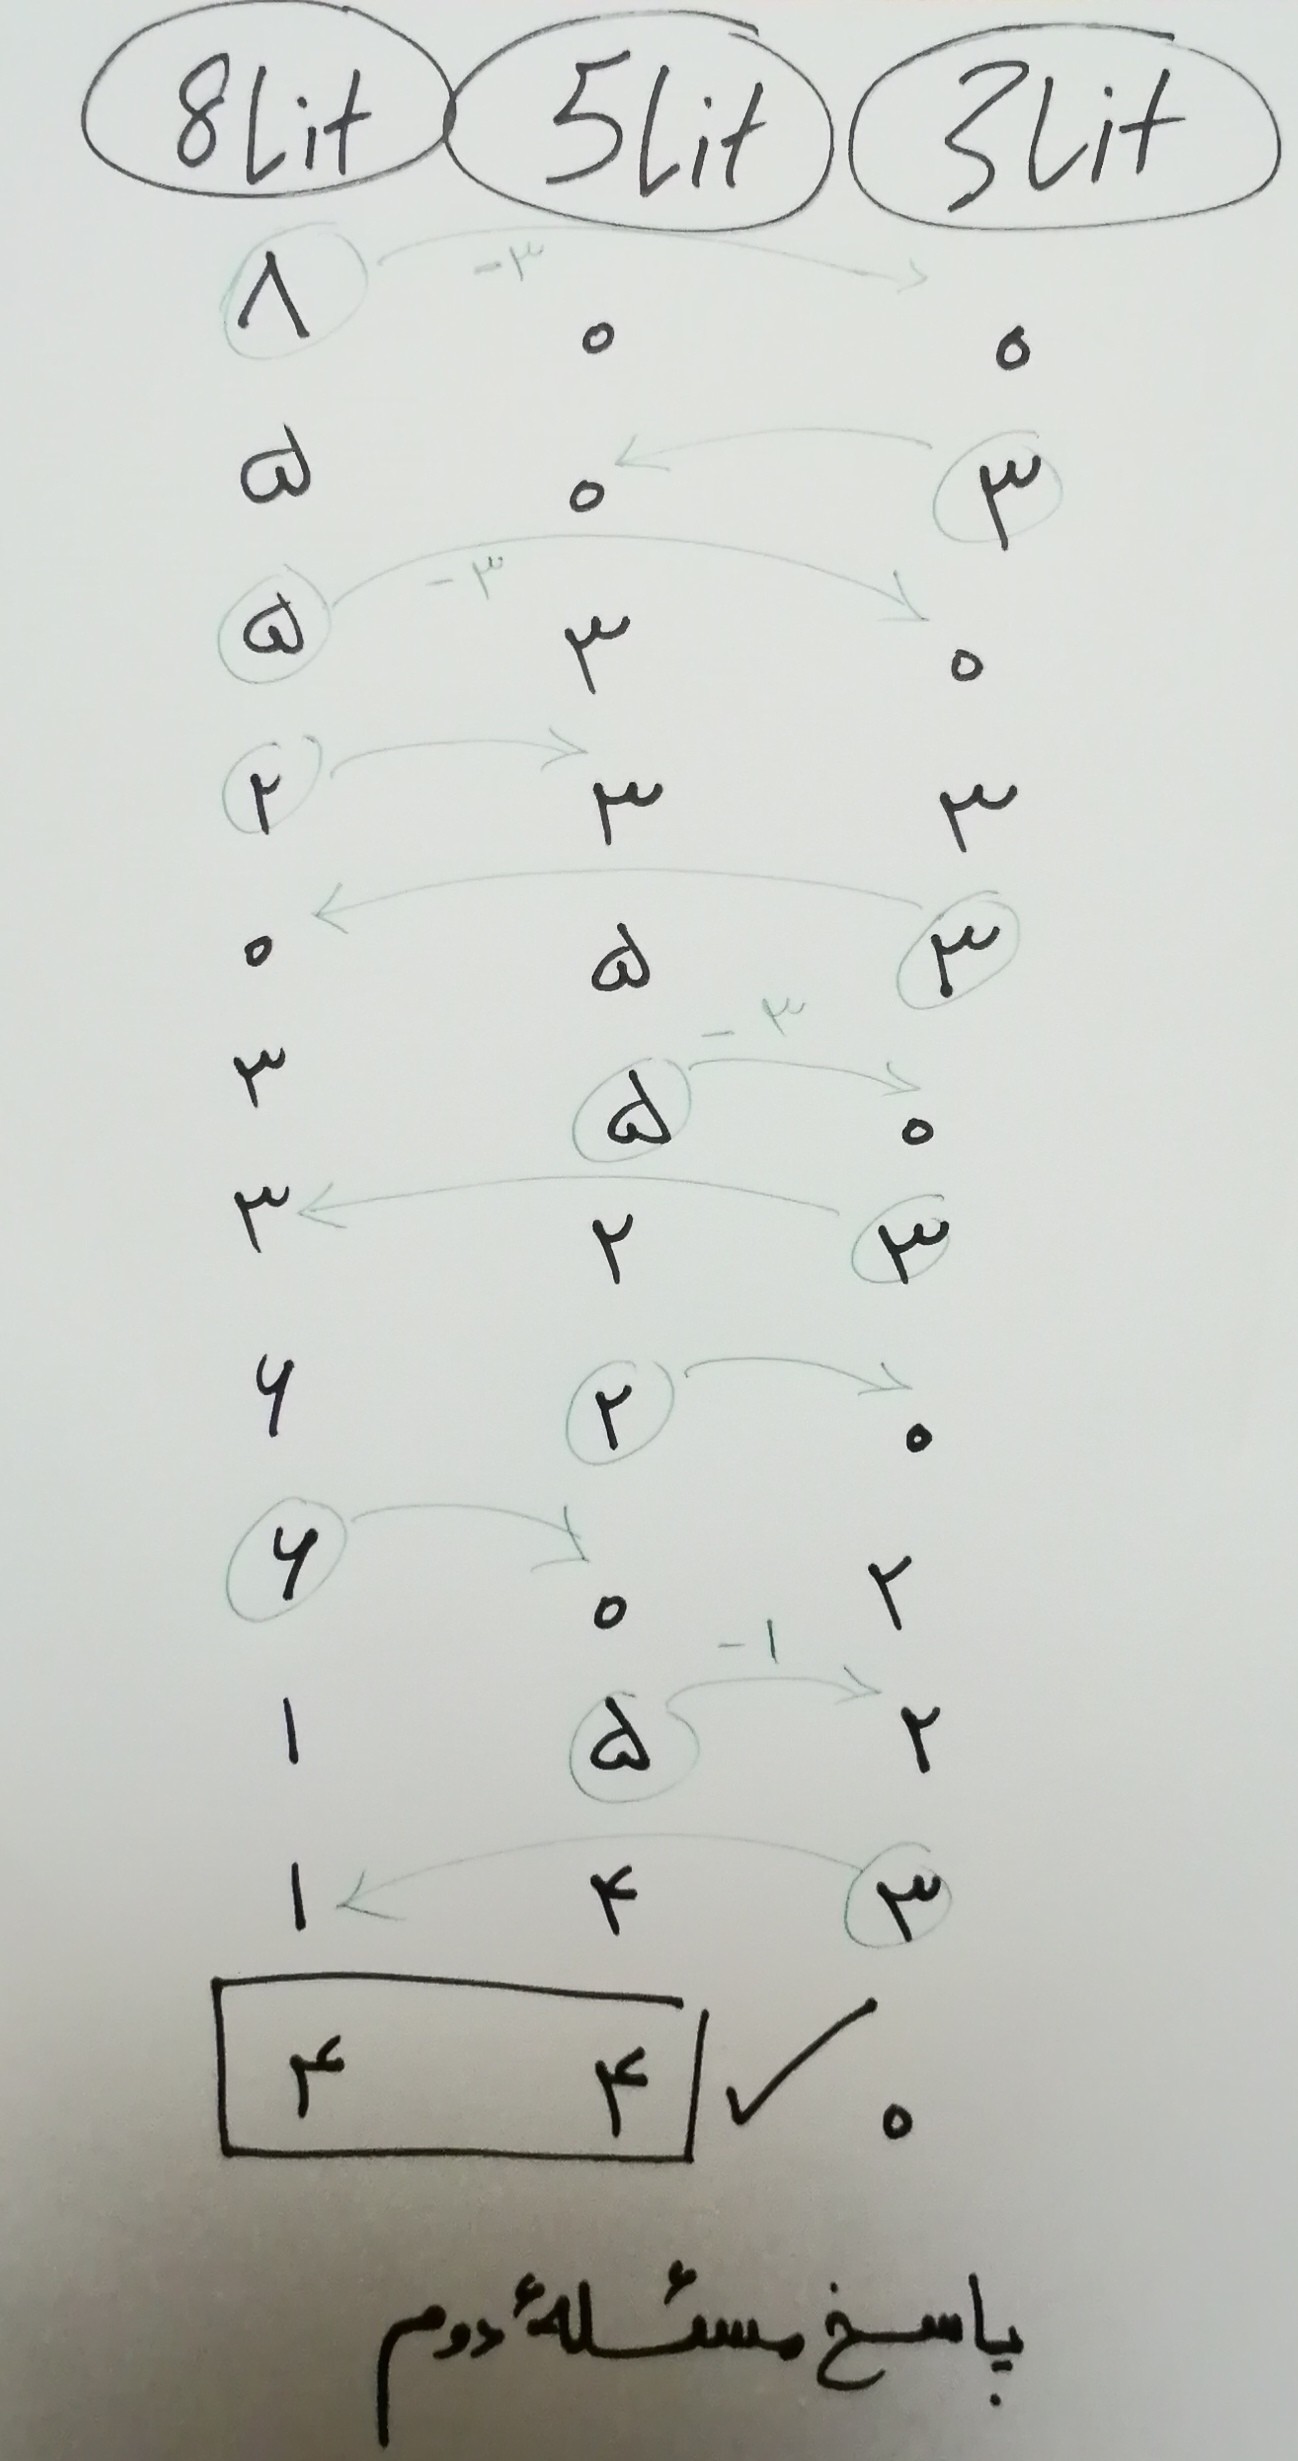 8Lit 5Lit 3Lit
-۳
۸ ۰ ۰
۵ ۰ ۳
-۳
۵ ۳ ۰
۲ ۳ ۳
۰ ۵ ۳
-۳
۳ ۵ ۰
۳ ۲ ۳
۶ ۲ ۰
۶ ۰ ۲
-۱
۱ ۵ ۲
۱ ۴ ۳
۴ ۴ ✓ ۰
پاسخ مسئلهٔ دوم